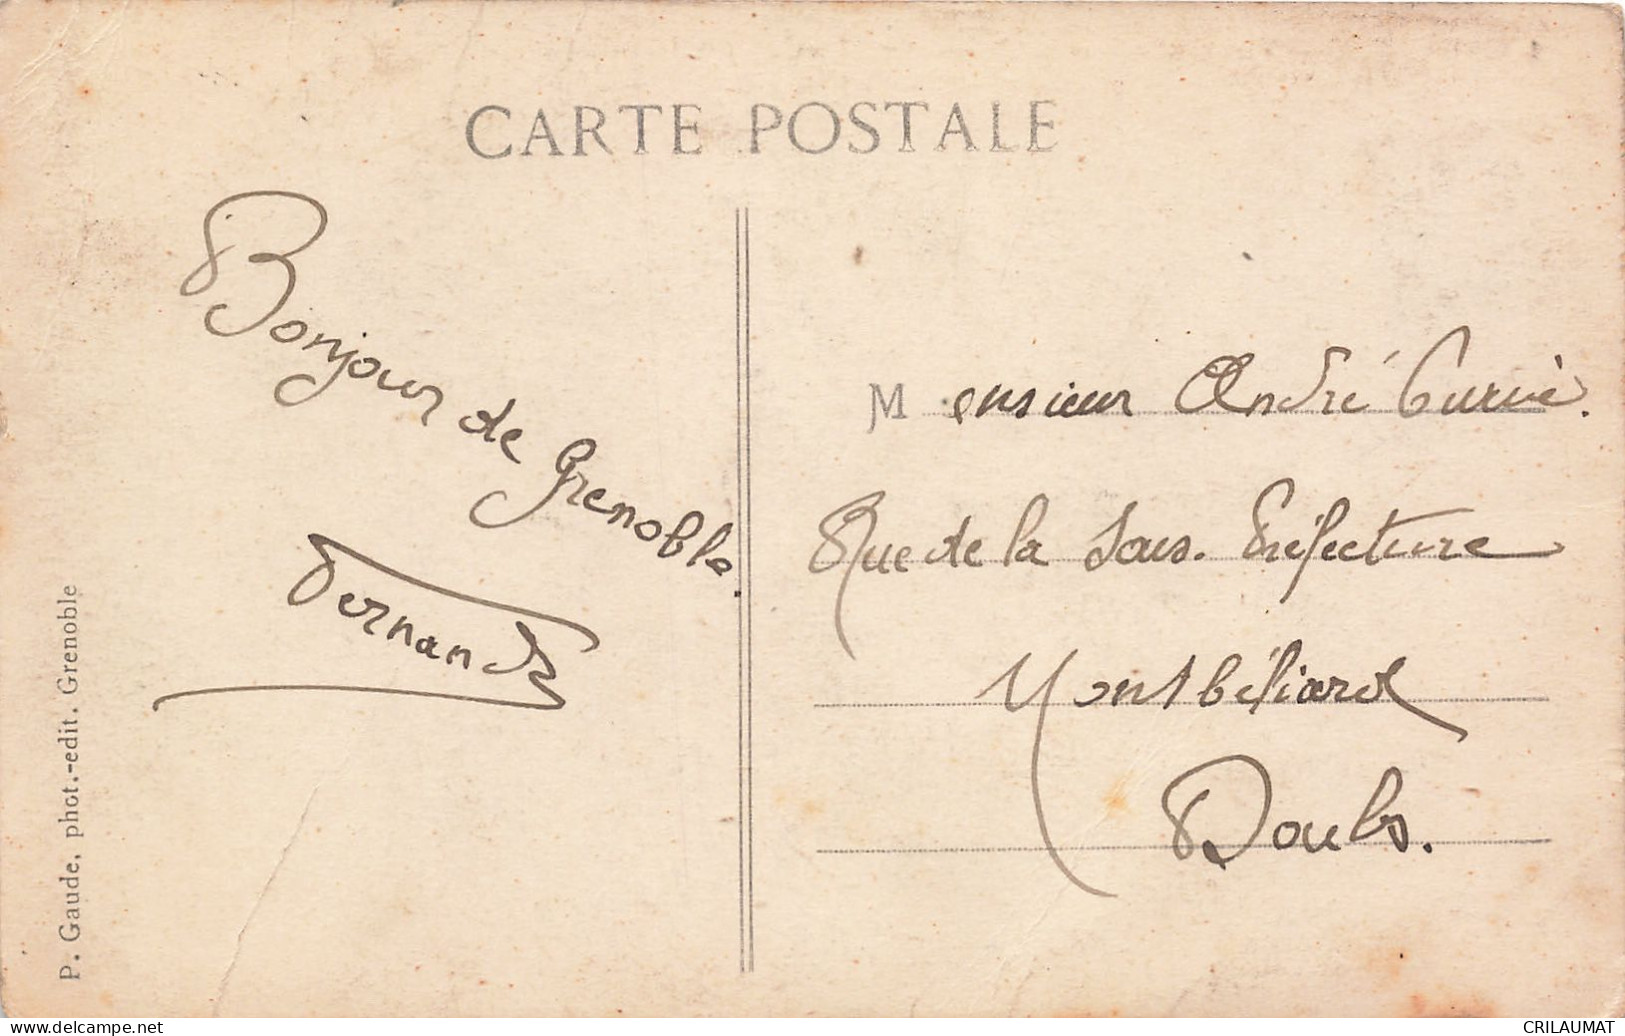 CARTE POSTALE
Bonjour de Grenoble.
Fernand
Monsieur André Curie.
Rue de la Sous-Préfecture
Montbéliard
Doubs.
P. Gaude, phot.-edit. Grenoble
www.delcampe.net
CRILAUMAT